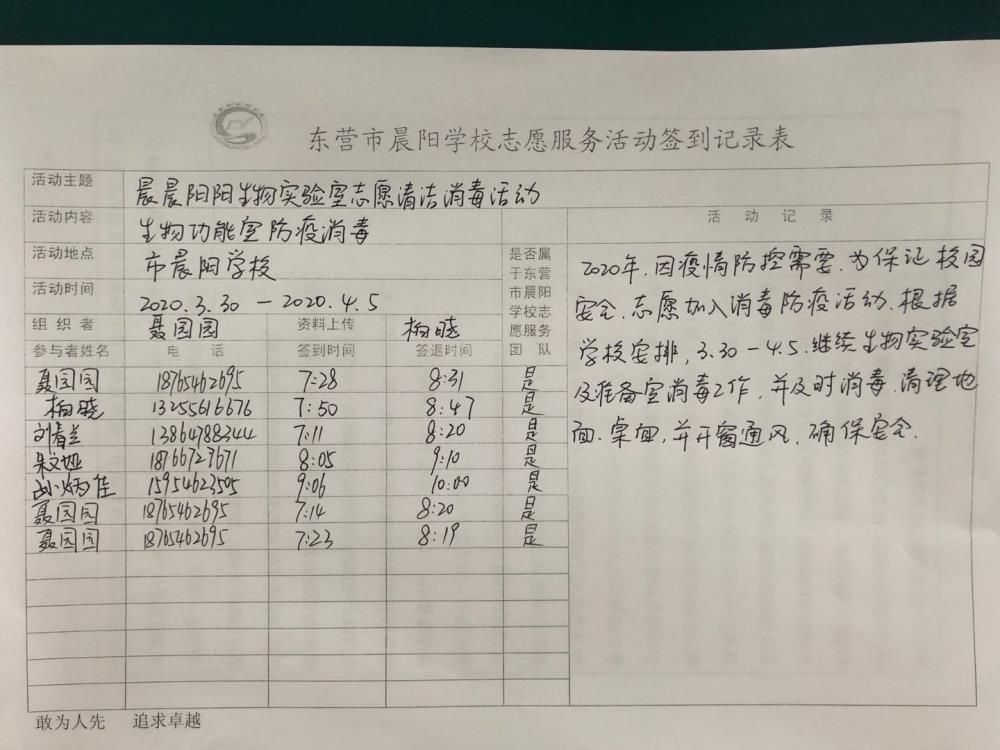 东营市晨阳学校志愿服务活动签到记录表
活动主题 晨晨阳阳生物实验室志愿清洁消毒活动
活动内容 生物功能室防疫消毒
活动地点 市晨阳学校
活动时间 2020.3.30 — 2020.4.5
组织者 聂园园 资料上传 柏晓
参与者姓名 电话 签到时间 签退时间
是否属
于东营
市晨阳
学校志
愿服务
团队
聂园园 18765462695 7:28 8:31 是
柏晓 13255616676 7:50 8:47 是
刘春兰 13864788344 7:11 8:20 是
朱文娅 18766727671 8:05 9:10 是
炳佳 15954623505 9:06 10:00 是
聂园园 18765462695 7:14 8:20 是
聂园园 18765462695 7:23 8:19 是
活动记录
2020年,因疫情防控需要,为保证校园
安全,志愿加入消毒防疫活动.根据
学校安排,3.30—4.5.继续生物实验室
及准备室消毒工作,并及时消毒.清理地
面.桌面,并开窗通风.确保安全.
敢为人先 追求卓越